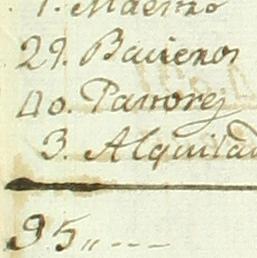 1. Maestro
29. Bacieros
40. Pastores
3. Alquilad
95,,---